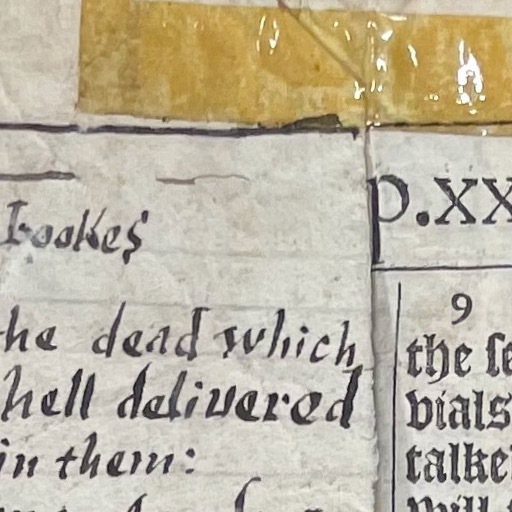 Bookes
he dead which
hell delivered
in them:
p.XX
9
the ſe
vials
talke
will